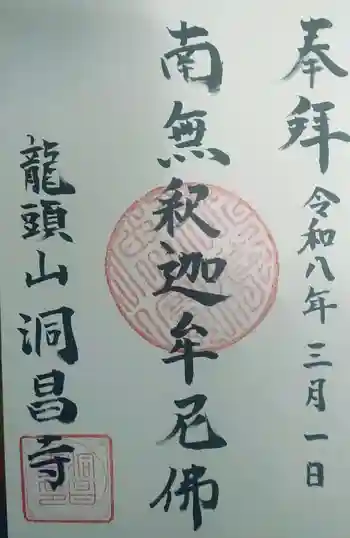 奉拜 令和八年三月一日
南無釈迦牟尼佛
龍頭山洞昌寺